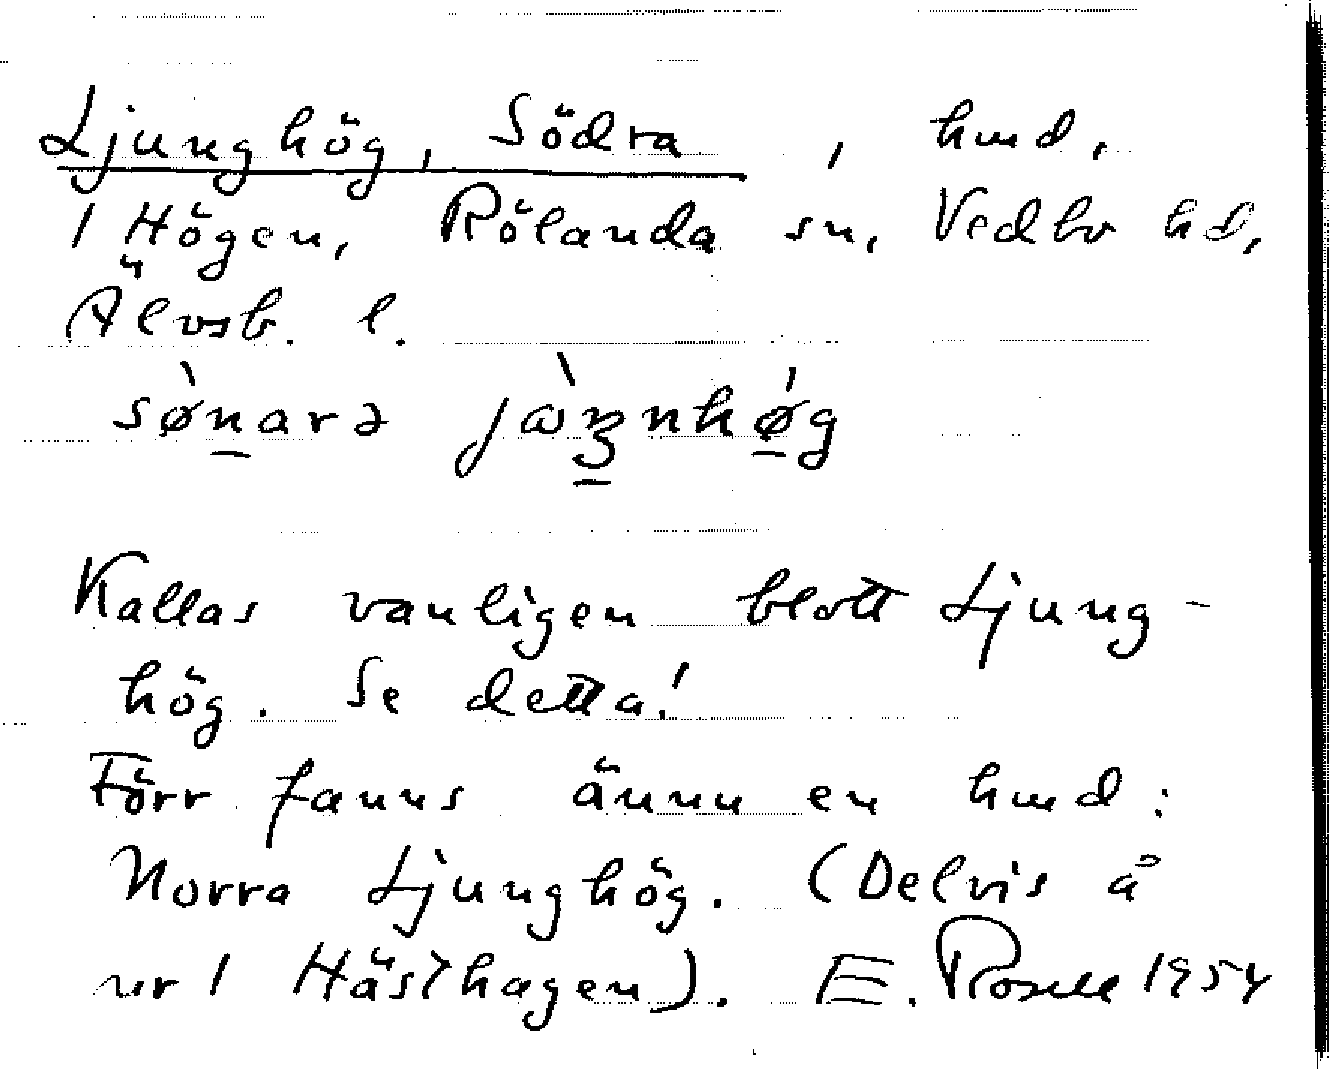 Ljunghög, Södra, hmd,
1 Högen, Rölanda sn, Vedbo hd,
Älvsb. l.
Kallas vanligen blott Ljung-
hög. Se detta!
Förr fanns ännu en hmd:
Norra Ljunghög. (Delvis å
nr 1 Hästhagen). E. Rosell 1954